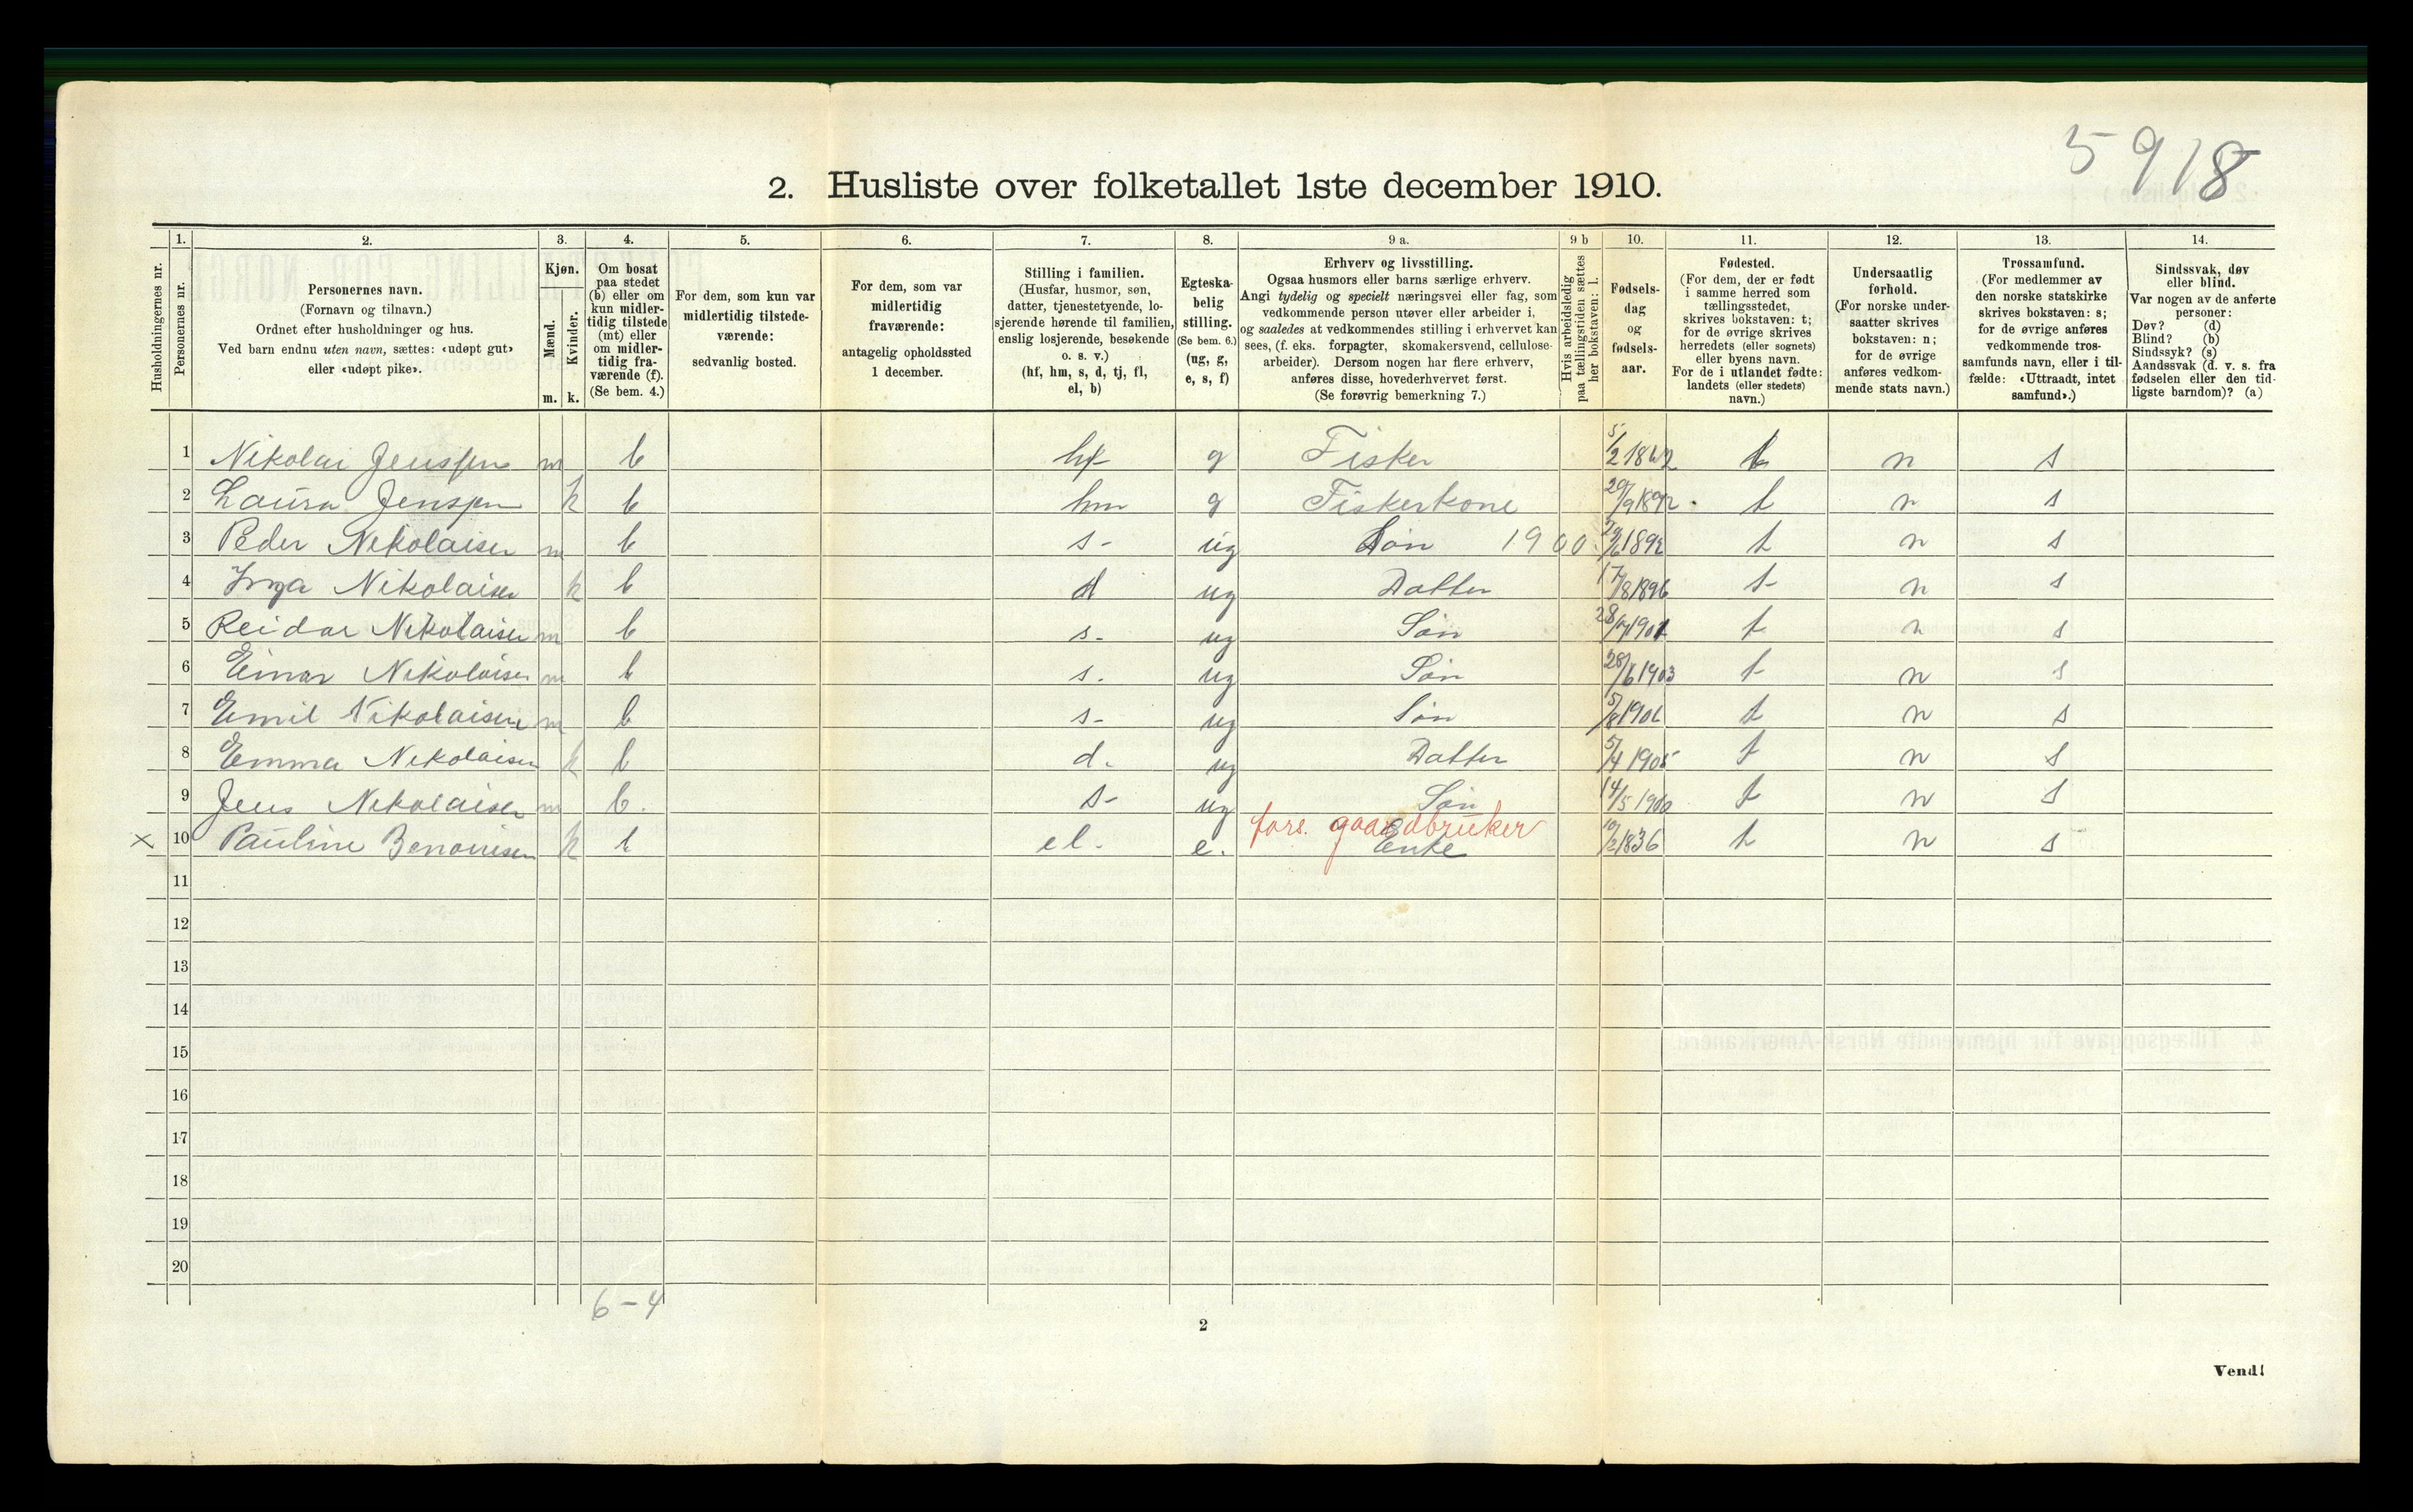 5918
2. Husliste over folketallet 1ste december 1910.
Husholdningernes nr.
1.
Personernes nr.
2.
Personernes navn.
(Fornavn og tilnavn.)
Ordnet efter husholdninger og hus.
Ved barn endnu uten navn, sættes: «udøpt gut»
eller «udøpt pike».
3.
Kjøn.
Mænd.
Kvinder.
m. k.
4.
Om bosat
paa stedet
(b) eller om
kun midler-
tidig tilstede
(mt) eller
om midler-
tidig fra-
værende (f).
(Se bem. 4.)
5.
For dem, som kun var
midlertidig tilstede-
værende:
sedvanlig bosted.
6.
For dem, som var
midlertidig
fraværende:
antagelig opholdssted
1 december.
7.
Stilling i familien.
(Husfar, husmor, søn,
datter, tjenestetyende, lo-
sjerende hørende til familien,
enslig losjerende, besøkende
o. s. v.)
(hf, hm, s, d, tj, fl,
el, b)
8.
Egteska-
belig
stilling.
(Se bem. 6.)
(ug, g,
e, s, f)
9 a.
Erhverv og livsstilling.
Ogsaa husmors eller barns særlige erhverv.
Angi tydelig og specielt næringsvei eller fag, som
vedkommende person utøver eller arbeider i,
og saaledes at vedkommendes stilling i erhvervet kan
sees, (f. eks. forpagter, skomakersvend, cellulose-
arbeider). Dersom nogen har flere erhverv,
anføres disse, hovederhvervet først.
(Se forøvrig bemerkning 7.)
9 b
Hvis arbeidsledig
paa tællingstiden sættes
her bokstaven: l.
10.
Fødsels-
dag
og
fødsels-
aar.
11.
Fødested.
(For dem, der er født
i samme herred som
tællingsstedet,
skrives bokstaven: t;
for de øvrige skrives
herredets (eller sognets)
eller byens navn.
For de i utlandet fødte:
landets (eller stedets)
navn.)
12.
Undersaatlig
forhold.
(For norske under-
saatter skrives
bokstaven: n;
for de øvrige
anføres vedkom-
mende stats navn.)
13.
Trossamfund.
(For medlemmer av
den norske statskirke
skrives bokstaven: s;
for de øvrige anføres
vedkommende tros-
samfunds navn, eller i til-
fælde: «Uttraadt, intet
samfund».)
14.
Sindssvak, døv
eller blind.
Var nogen av de anførte
personer:
Døv? (d)
Blind? (b)
Sindssyk? (s)
Aandssvak (d. v. s. fra
fødselen eller den tid-
ligste barndom)? (a)
1 Nikolai Jenssen m b hf g Fisker 5/2 t n s
2 Laura Jenssen k b hm g Fiskerkone 29/9 t n s
3 Peder Nikolaisen m b s- ug Søn 1900. t n s
4 Inga Nikolaisen k b d ug Datter 17/8 1896 t- n s
5 Reidar Nikolaisen m b s- ug Søn t n s
6 Einar Nikolaisen m b s. ug Søn 28/6 1903 t n s
7 Emil Nikolaisen m b s- ug Søn 5/8 t n s
8 Emma Nikolaisen k b d. ug Datter 5/4 1905 t n s
9 Jens Nikolaisen m b. s- ug Søn 14/5 t n s
fors. gaardbruker
x 10 Pauline k b el. e. Enke 10/2 1836 t n s
11
12
13
14
15
16
17
18
19
20
6-4
2
Vend!